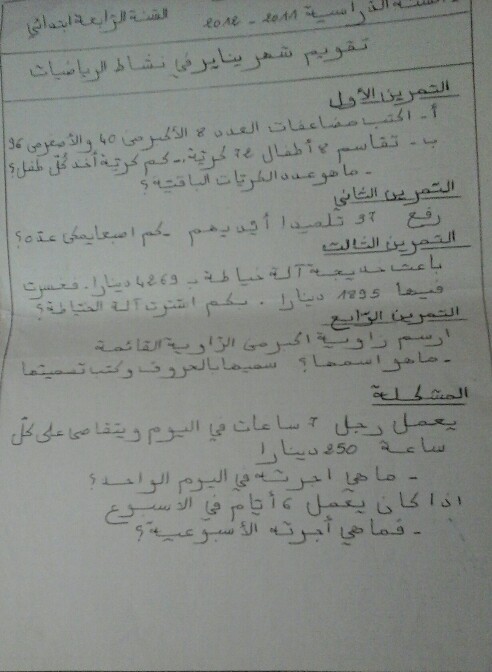 السنة الدراسية 2011 - 2012 السنة الرابعة ابتدائي
تقويم شهر يناير في نشاط الرياضيات
التمرين الأول
أ - اكتب مضاعفات العدد 8 الأكبر من 40 والأصغر من 96
ب - تقاسم 8 أطفال 78 كرية، - كم كرية أخذ كل طفل؟
- ما هو عدد الكريات الباقية؟
التمرين الثاني
رفع 37 تلميذا أيديهم - كم اصبعا يمكن عده؟
التمرين الثالث
باعت خديجة آلة خياطة ب 4269 دينارا. فخسرت
فيها 1895 دينارا. بكم اشترت آلة الخياطة؟
التمرين الرابع
ارسم زاوية اكبر من الزاوية القائمة
- ما هو اسمها؟ سميها بالحروف وكتب تسميتها
المشكلة
يعمل رجل 7 ساعات في اليوم ويتقاضى على كل
ساعة 250 دينارا
- ما هي اجرته في اليوم الواحد؟
اذا كان يعمل 6 أيام في الأسبوع
- فما هي أجرته الأسبوعية؟